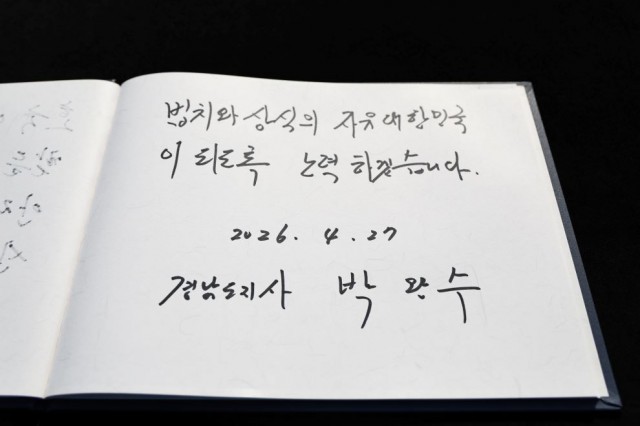 법치와 상식의 자유대한민국
이 되도록 노력 하겠습니다.
2026. 4. 27
경남도지사 박 완 수